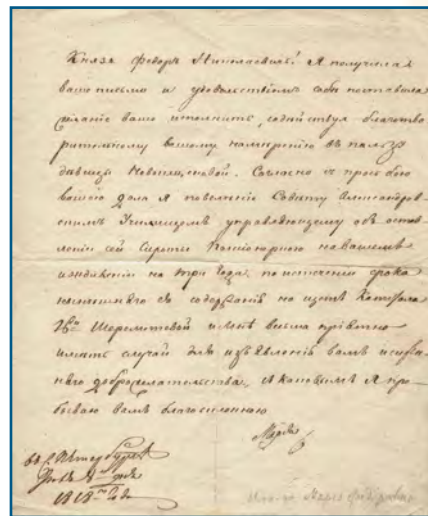 Князь Федоръ Николаевичь! Я получила
ваше письмо и удовольствіемъ себѣ поставила
желаніе ваше исполнить, содѣйствуя благотво
рительному вашему намѣренію въ пользу
дѣвицы. Согласно съ прозьбою
вашею дала я повелѣніе Совѣту Александров
скимъ Училищемъ управляющему объ остав
леніи сей Сироты Пансіонеркою на вашемъ
иждивеніи на три года, по истеченіи срока
нынѣшняго ея содержанія на щетъ Капитала
Шереметевой и мнѣ весьма пріятно
имѣть случай для изъявленія вамъ искрен
няго доброжелательства, съ каковымъ я пре
бываю вамъ благосклонною
Марія
въ С. Петербургѣ
1818 года
Марія Федоровна